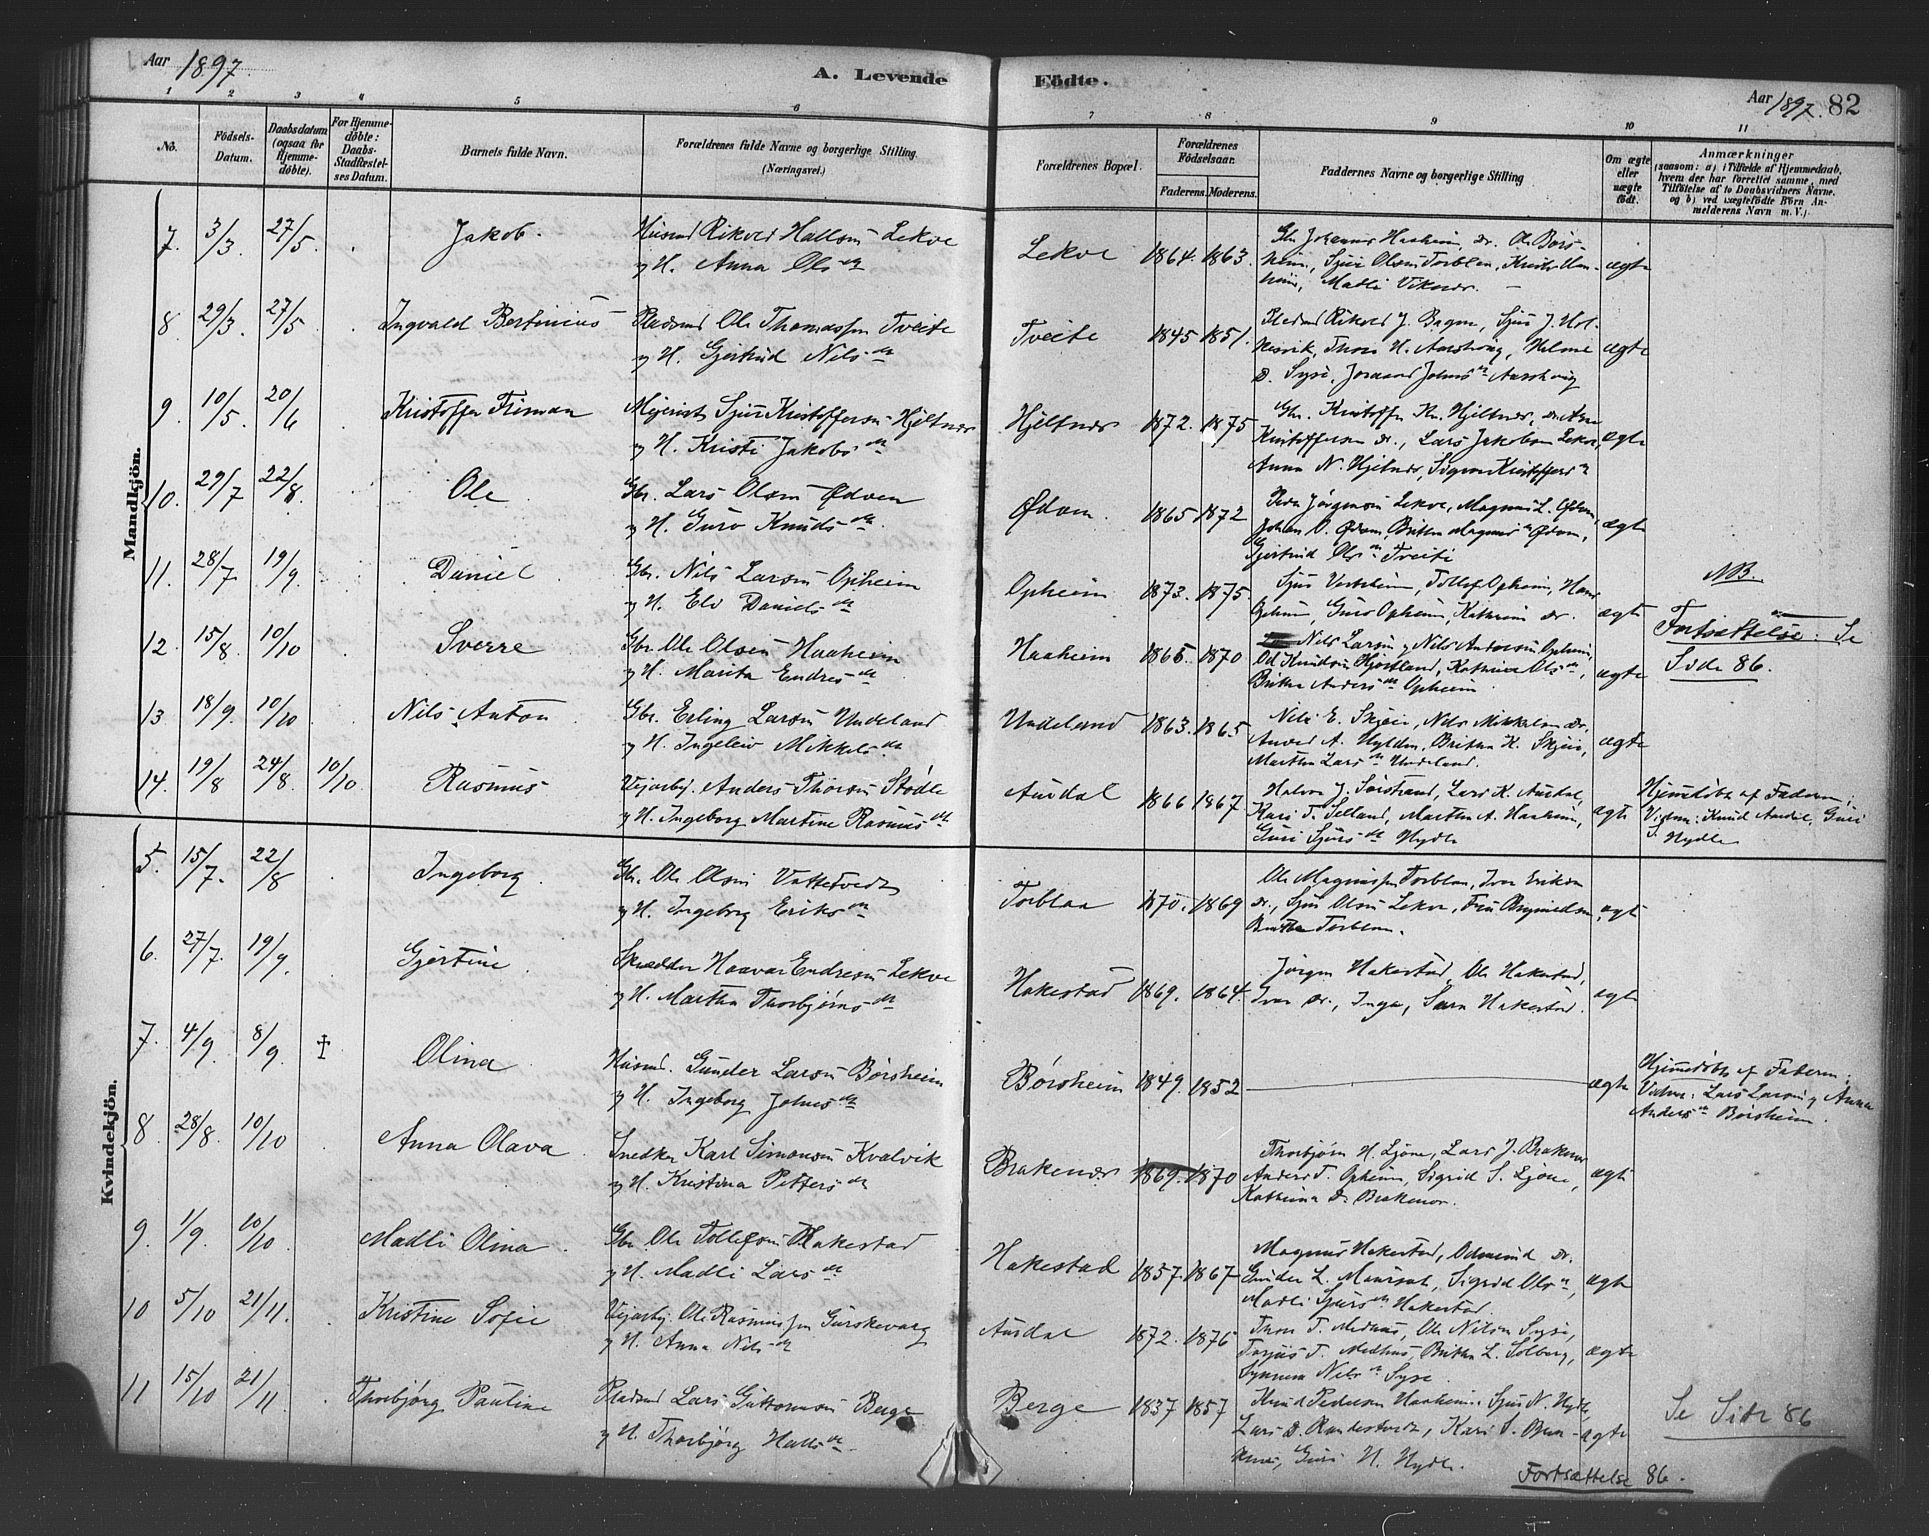 Aar 1897.
A. Levende Födte.
Aar 1897. 82
1 2 3 4 5 6 7 8 9 10 11
No.
Födsels-Datum.
Daabsdatum (ogsaa for Hjemmedøbte).
For Hjemmedøbte: Daabs-Stadfæstelses Datum.
Barnets fulde Navn.
Forældrenes fulde Navne og borgerlige Stilling (Næringsvei.)
Forældrenes Bopæl.
Forældrenes Födselsaar.
Faderens. Moderens.
Faddernes Navne og borgerlige Stilling
Om ægte eller uægte födt.
Anmærkninger
(saasom: a) i Tilfælde af Hjemmedaab,
hvem der har forrettet samme, med
Tilføielse af to Daabsvidners Navne,
og b) ved uægtefödte Börn An-
melderens Navn m. V.)
Mandkjön.
7. 3/3 27/5 Jakob. Husmd Rikvld Hallsen Lekve
og H. Anna Olsdtr
Lekve 1864. 1863.
Johannes Haaheim, Ole Børs-
heim, Sjur Olsen Torblaa,
Madli Viknes.
ægte
8 29/3 27/5 Ingvald Bertinius Pladsmd Ole Thomassen Tveite
og H. Gjertrud Nilsdtr
Tveite 1845 1851.
Pladsmd Rikold J. ... Sjur J. Hol-
ægte
9. 10/5. 20/6 Kristoffer Friman Mejerist Sjur Kristoffersen Hjeltnes
og H. Kristi Jakobsdtr
Hjeltnes 1872. 1875
Gbr. Kristoffer Hjeltnes,
Kristoffersen do., Lars Jakobsen Lekve,
Anna N. Hjeltnes, Kristoffersd
ægte
10. 29/7 22/8. Ole Gbr. Lars Olsen Ødven
og H. Guro Knudsdtr.
Ødven. 1865 1872
Peder Jørgensen Lekve, Magnus L. Ødven,
Johan O. Ødven, Britha Magnusd Ødven,
Gjertrud Olsd Tveite
ægte
11. 28/7. 19/9. Daniel Gbr. Nils Larsen Opheim
og H. Eli Danielsdtr
Opheim 1873. 1875
Sjur Vestrheim, Tollef Opheim, Hans
Guro Opheim, Kathrine do.
ægte
NB.
12. 15/8. 10/10 Sverre Gbr. Ole Olsen Haaheim
og H. Marita Endresdtr
Haaheim 1865. 1870
Nils Larsen og Nils Andersen Opheim,
Od Knudsen Hjortland, Katrina Olsd,
Britha Andersd Opheim.
ægte
Fortsættelse. Se
Side 86.
13. 18/9. 10/10 Nils Anton Gbr. Erling Larsen Undeland
og H. Ingeleiv Mikkelsdtr
Undeland 1863. 1865
Nils E. Skjeie, Nils Mikkelsen do.
A. Hylden, Britha K. Skjeie,
Martha Larsd Undeland.
ægte
14. 19/8 24/8. 10/10. Rasmus Vejarbj. Anders Thorsen Stødle
og H. Ingeborg Martine Rasmusdtr
Aurdal 1866 1867
Halvor J. Sørstrand, Lars K. Aurdal,
Kari T. Selland, Martha A. Haaheim,
Guri Sjursd Hydle
ægte
Hjemmedøbt af Faderen;
Vidner: Knud Aurdal, Guri
S. Hydle
Kvindekjön.
5. 15/7. 22/8 Ingeborg. Gbr. Ole Olsen Vattetvedt
og H. Ingeborg Eriksdtr
Torblaa 1870. 1869
Ole Magnussen Torblaa, Ivar Eriksen
do., Sjur Olsen Lekve,
Britha Torblaa.
ægte
6. 27/7. 19/9. Gjertine Skrædder Haavar Endresen Lekve
og H. Martha Thorbjørnsdtr
Hakestad 1869. 1864.
Jörgen Hakestad, Ole Hakestad,
Ivar do., Inga, Sara Hakestad.
ægte
7. 4/9. 8/9. † Olina Husmd. Gunder Larsen Børsheim
og H. Ingeborg Johnsdtr
Børsheim 1849. 1852
ægte
Hjemmedøbt af Faderen;
Vidner: Lars Larsen og Anna
Andersd Børsheim.
8. 28/8. 10/10 Anna Olava Snedker Karl Simonsen Kvalvik
og H. Kristina Pettersdtr
Brakenes 1869. 1870
Thorbjørn H. Ljøne, Lars J. Brakenes
Anders T. Opheim, Sigrid S. Ljøne,
Kathrina D. Brakenes.
ægte
9. 1/9. 10/10 Madli Olina Gbr Ole Tollefsen Hakestad
og H. Madli Larsdtr
Hakestad 1857. 1867
Magnus Hakestad, Odmund do.
Gunder L. Maursæt, Sigrid Olsd,
Madli Sjursd Hakestad.
ægte
10 5/10 21/11. Kristine Sofie Vejarbj. Ole Rasmussen Gurskevaag
og H. Anna Nilsdtr
Aurdal 1872. 1876
Thor T. Medhus, Ole Nilsen Syse,
Torjus T. Medhus, Britha L. Solberg,
Synneva Nilsd Syse.
ægte
11 15/10 21/11. Thorbjørg Pauline Pladsmd Lars Guttormsen Berge
og H. Thorbjørg Hallsdtr.
Berge 1837 1857
Knud Pedersen Haaheim, Sjur N. Hydle,
Lars D. Randestvedt, Kari S. Bra-
kenes, Guri H. Hydle.
ægte
Se Side 86
Fortsættelse 86.